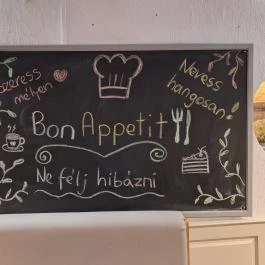 Szeress
mélyen
Nevess
hangosan!
Bon Appetit
Ne félj hibázni